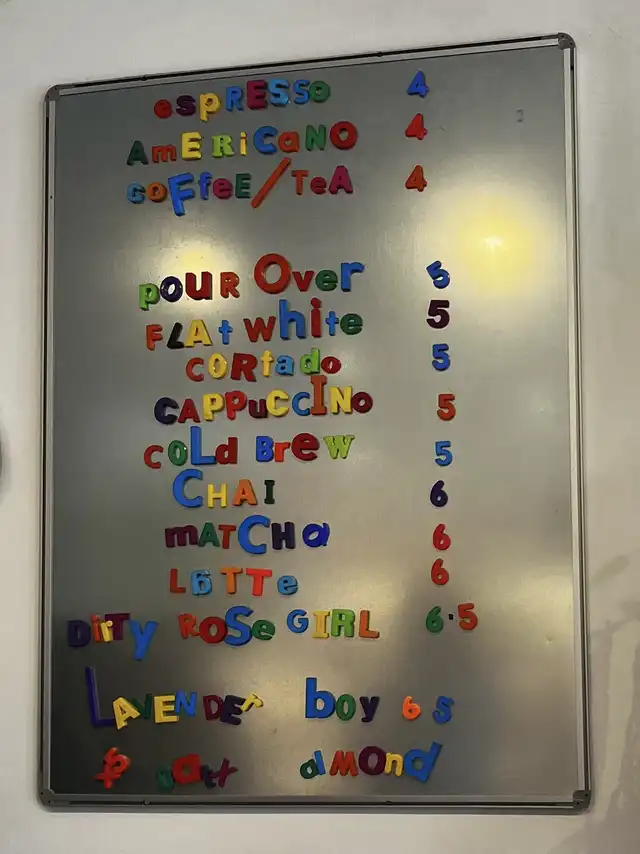 espRESSo 4
AmERiCaNO 4
coFfeE/TeA 4
pOuR Over 5
FLAt white 5
CORtado 5
CAPPuCCINo 5
COLd BreW 5
CHAI 6
mATCHa 6
LaTTe 6
DirTy ROSe GIRL 6.5
LAVENDEr boy 6 5
almOnd